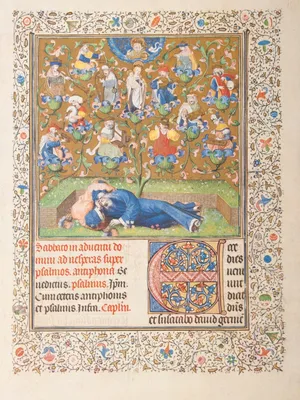 Sabbato in aduentu do
mini ad vesperas super
psalmos. antiphona Be
nedictus. psalmus.
Cum ceteris antiphonis
et psalmis
Ecce
dies
ueni
unt
dicit
dns
et suscitabo dauid germe